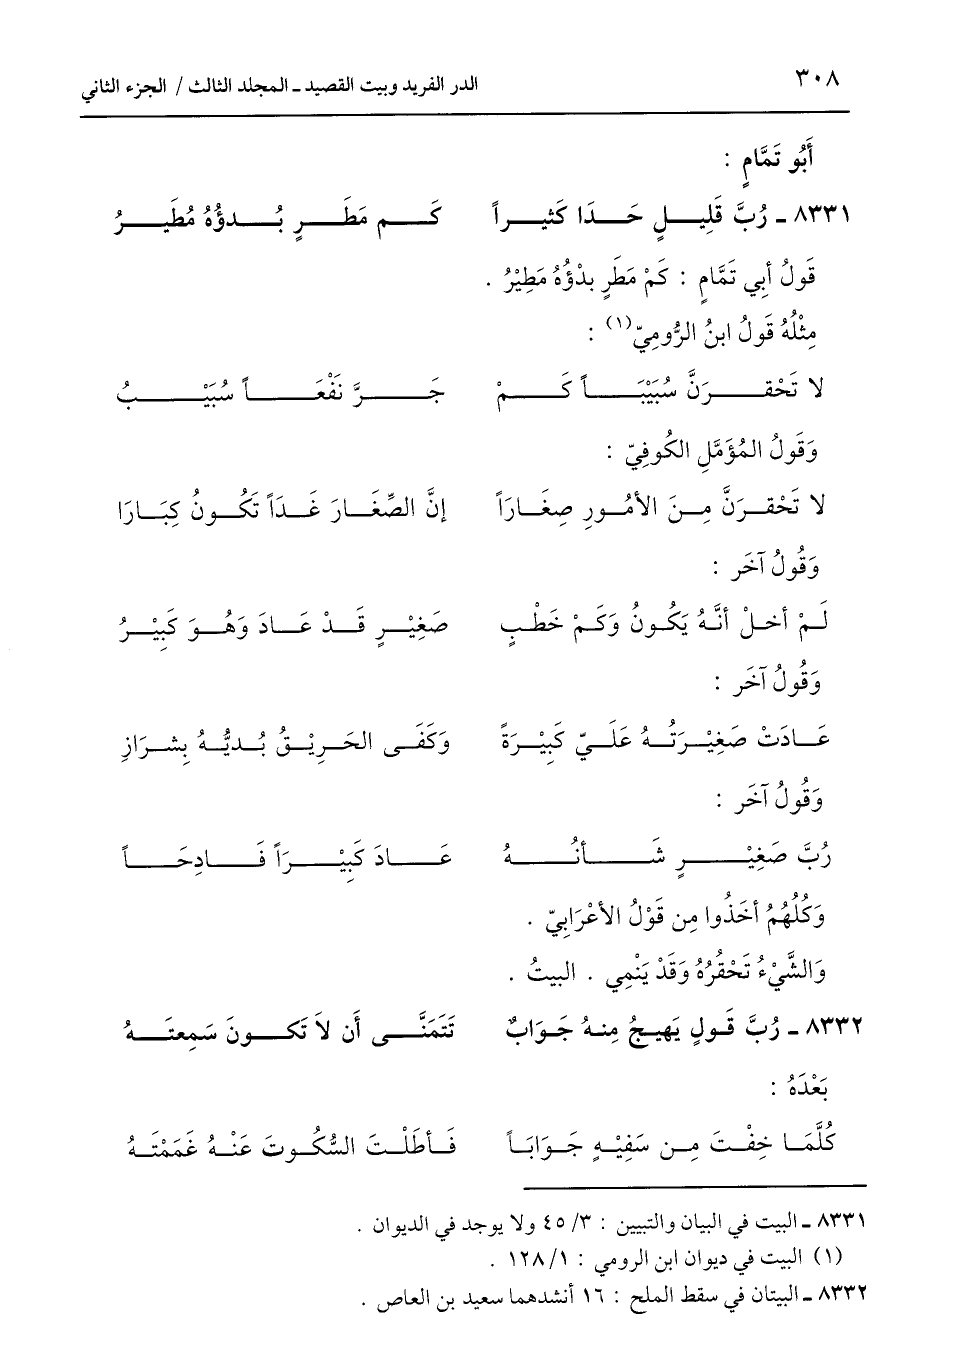 ٣٠٨ الدر الفريد وبيت القصيد ـ المجلد الثالث / الجزء الثاني
أَبُو تَمَّامٍ :
٨٣٣١ ـ رُبَّ قَلِيلٍ حَدَا كَثيراً كَم مَطَرٍ بُدؤُهُ مُطَيرُ
قَولُ أبِي تَمَّامٍ : كَمْ مَطَرٍ بدْؤُهُ مَطِيْرُ .
مِثْلُهُ قَولُ ابنُ الرُّومِيّ(١) :
لا تَحْقرَنَّ سُبَيْبَاً كَمْ جَرَّ نَفْعَاً سُبَيْبُ
وَقَولُ المُؤَمَّلِ الكُوفِيّ :
لا تَحْقرَنَّ مِنَ الأمُورِ صِغَارَاً إنَّ الصِّغَارَ غَدَاً تَكُونُ كِبَارَا
وَقُولُ آخَر :
لَمْ أخلْ أنَّهُ يَكُونُ وَكَمْ خَطْبٍ صَغِيْرٍ قَدْ عَادَ وَهُوَ كَبِيْرُ
وَقُولُ آخَر :
عَادَتْ صَغِيْرَتُهُ عَلَيّ كَبِيْرَةً وَكَفَى الحَرِيْقُ بُديُّهُ بِشرَازِ
وَقُولُ آخَر :
رُبَّ صَغِيْرٍ شَأنُهُ عَادَ كَبِيْرَاً فَادِحَاً
وَكُلُهُمُ أخَذُوا مِن قَوْلُ الأعْرَابِيّ .
وَالشَّيْءُ تَحْقُرُهُ وَقَدْ يَنْمِي . البيتُ .
٨٣٣٢ ـ رُبَّ قَولٍ يَهيجُ مِنهُ جَوَابٌ تَتَمَنَّى أَن لاَ تَكونَ سَمِعتَهُ
بَعْدَهُ :
كُلَّمَا خِفْتَ مِن سَفِيْهٍ جَوَابَاً فَأطَلْتَ السُّكُوتَ عَنْهُ غَمَمْتَهُ
٨٣٣١ ـ البيت في البيان والتبيين : ٣/ ٤٥ ولا يوجد في الديوان .
(١) البيت في ديوان ابن الرومي : ١/ ١٢٨ .
٨٣٣٢ ـ البيتان في سقط الملح : ١٦ أنشدهما سعيد بن العاص .